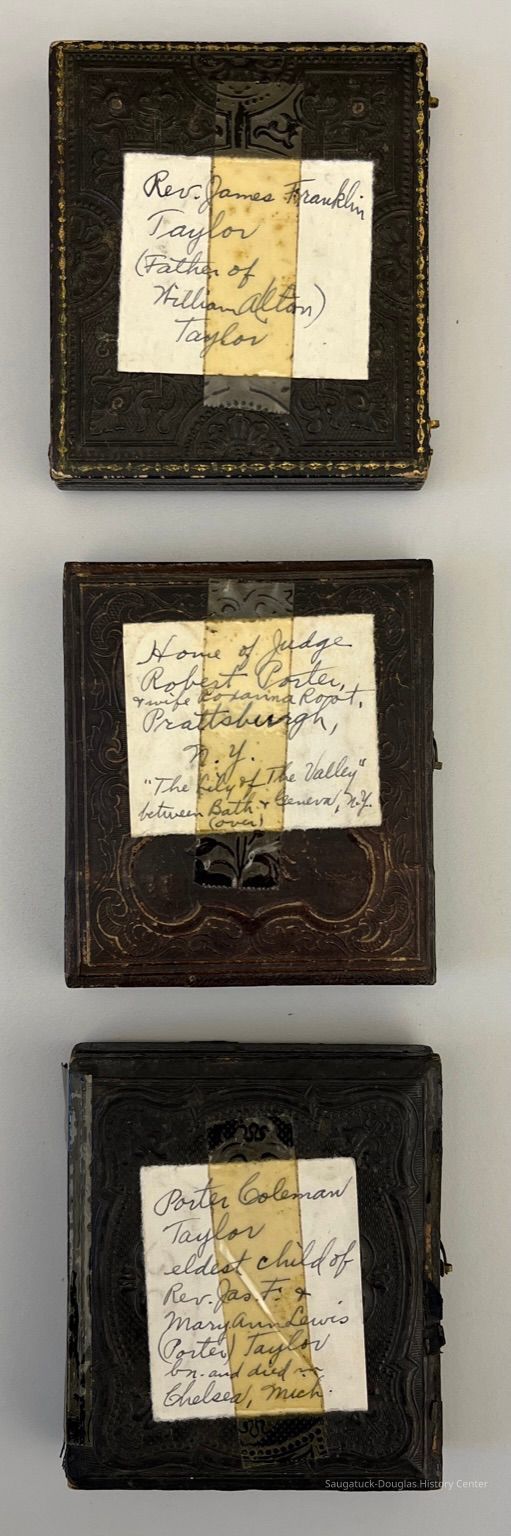 Rev. James Franklin
Taylor
(Father of
William Alton)
Taylor
Home of Judge
Robert Porter,
& wife Roxanna Root,
Prattsburgh,
N.Y.
"The Lily of The Valley"
between Bath & Geneva, N.Y.
(over)
Porter Coleman
Taylor
eldest child of
Rev. Jas. F. &
Mary Ann Lewis
(Porter) Taylor
bn. and died in
Chelsea, Mich.
Saugatuck-Douglas History Center